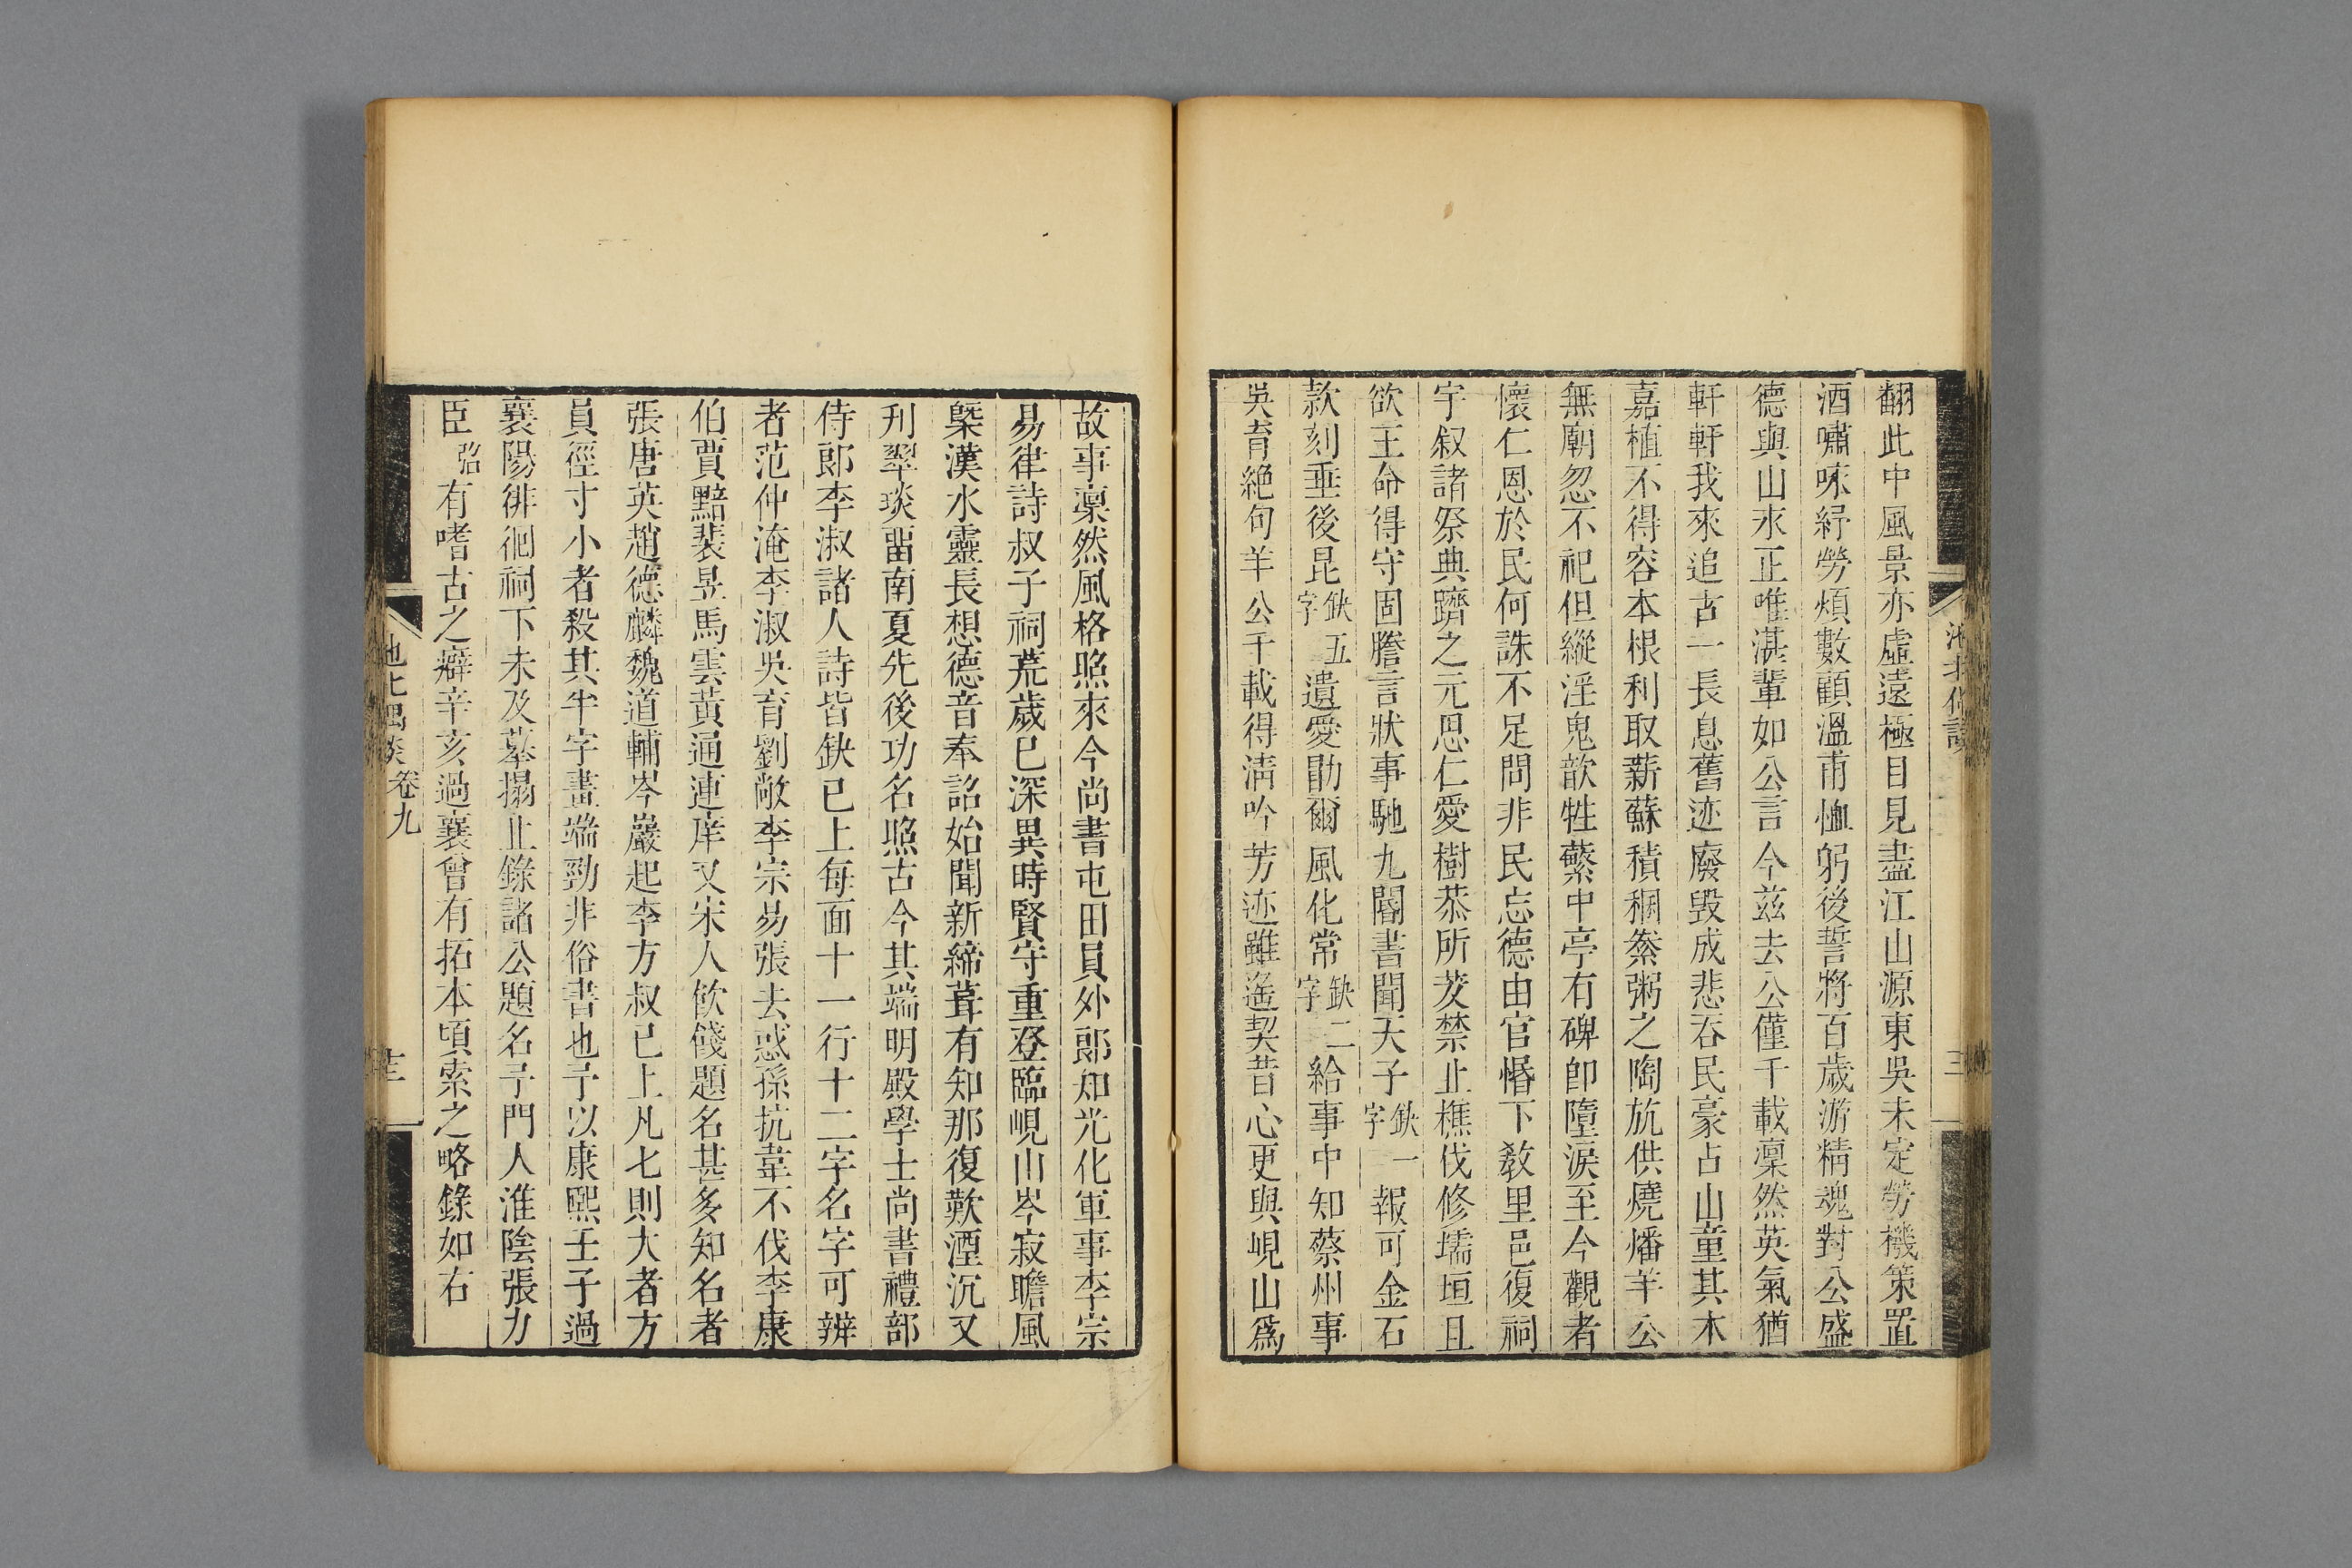 翻此中風景亦虛遠極目見盡江山源東吳未定勞機策置
酒嘯咏紓勞煩數顧溫甫恤躬後誓將百歲游精魂對公盛
德與山永正唯湛輩如公言今兹去公僅千載凜然英氣猶
軒軒我來追古一長息舊迹廢毀成悲吞民豪占山童其木
嘉植不得容本根利取薪蘇積稇䅈粥之陶旊供燒燔羊公
無廟忽不祀但縱淫鬼歆牲蘩中亭有碑卽墮淚至今觀者
懷仁恩於民何誅不足問非民忘德由官惛下敎里邑復祠
宇叙諸祭典躋之元思仁愛樹恭所茇禁止樵伐修壖垣且
欲王命得守固謄言狀事馳九閽書聞天子缺一字報可金石
款刻垂後昆缺五字遺愛勛爾風化常缺二字給事中知蔡州事
吳育絶句羊公千載得淸吟芳迹雖遙契昔心更與峴山爲
故事凜然風格照來今尚書屯田員外郎知光化軍事李宗
易律詩叔子祠荒歲已深異時賢守重登臨峴山岑寂瞻風
槩漢水靈長想德音奉詔始聞新締葺有知那復歎湮沉又
刋翠琰畱南夏先後功名照古今其端明殿學士尚書禮部
侍郎李淑諸人詩皆缺已上每面十一行十二字名字可辨
者范仲淹李淑吳育劉敞李宗易張去惑孫抗韋不伐李康
伯賈黯裴昱馬雲黃通連庠又宋人飮餞題名甚多知名者
張唐英趙德麟魏道輔岑巖起李方叔已上凡七則大者方
員徑寸小者殺其半字畫端勁非俗書也予以康熙壬子過
襄陽徘徊祠下未及摹搨止錄諸公題名予門人淮陰張力
臣弨有嗜古之癖辛亥過襄曾有拓本頃索之略錄如右
池北偶談卷九